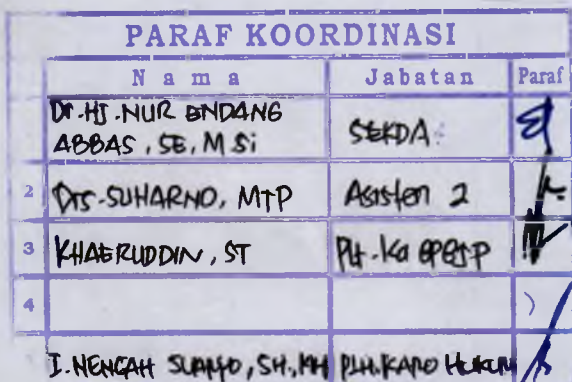 PARAF KOORDINASI
Nama Jabatan Paraf
Dr.HJ.NUR ENDANG
ABBAS, SE, M Si SEKDA
2 Drs.SUHARNO, MTP Asisten 2
3 KHAERUDDIN, ST Plt.Ka
4
I.NENGAH SUARYO, SH., MH PLH.KARO HUKUM